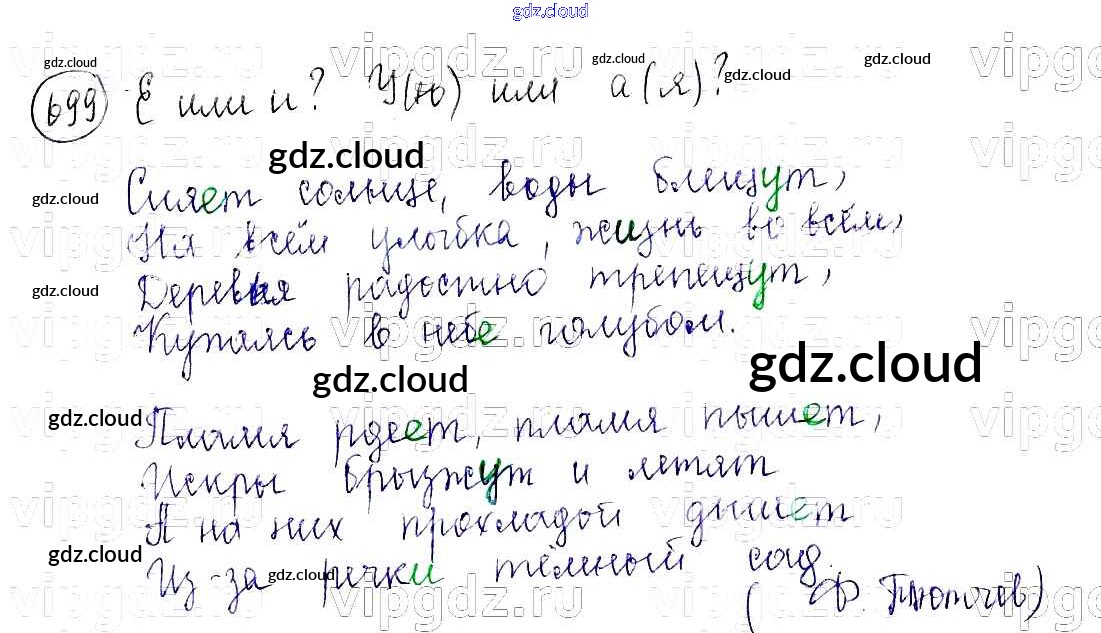 gdz.cloud
vipgdz.ru vipgdz.ru vipgdz.ru vipgdz
gdz.cloud gdz.cloud gdz.cloud gdz.cloud
699 Е или и? У(ю) или а(я)?
gdz.cloud
Сияет солнце, воды блещут,
gdz.cloud
На всём улыбка, жизнь во всём,
Деревья радостно трепещут,
gdz.cloud
Купаясь в небе голубом.
gdz.cloud gdz.cloud
Пламя рдеет, пламя пышет,
gdz.cloud gdz.cloud
Искры брызжут и летят
А на них прохладой дышет
gdz.cloud gdz.cloud
Из-за речки тёмный сад.
gdz.cloud
(Ф. Тютчев)